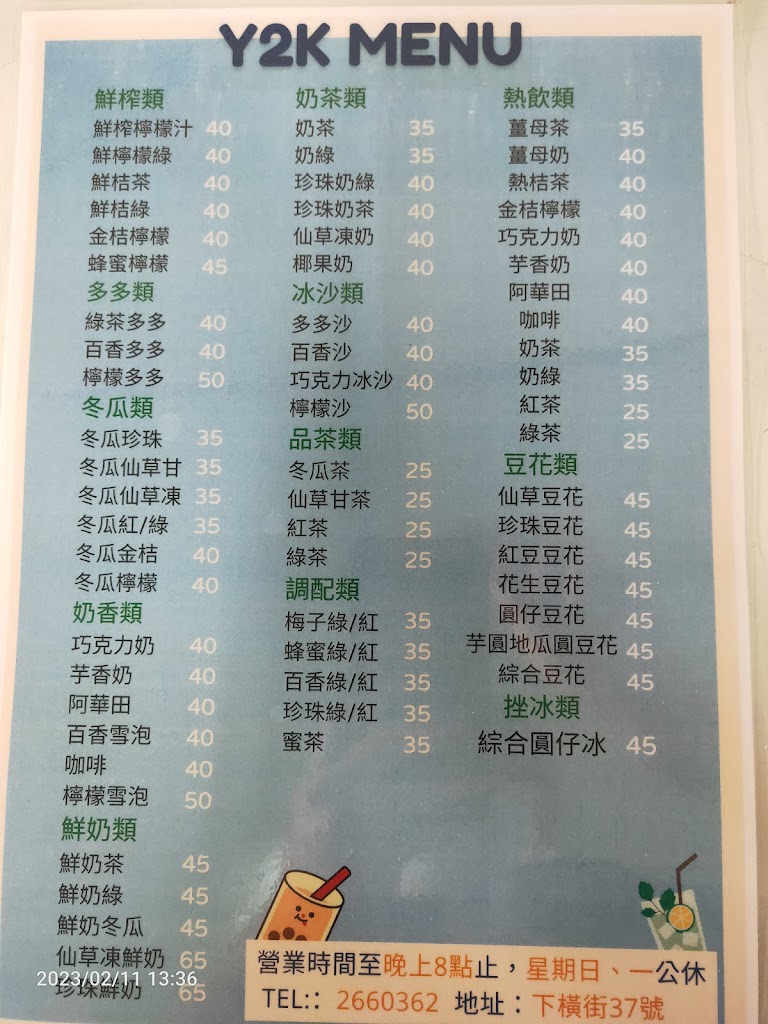 Y2K MENU
鮮榨類
鮮榨檸檬汁 40
鮮檸檬綠 40
鮮桔茶 40
鮮桔綠 40
金桔檸檬 40
蜂蜜檸檬 45
多多類
綠茶多多 40
百香多多 40
檸檬多多 50
冬瓜類
冬瓜珍珠 35
冬瓜仙草甘 35
冬瓜仙草凍 35
冬瓜紅/綠 35
冬瓜金桔 40
冬瓜檸檬 40
奶香類
巧克力奶 40
芋香奶 40
阿華田 40
百香雪泡 40
咖啡 40
檸檬雪泡 50
鮮奶類
鮮奶茶 45
鮮奶綠 45
鮮奶冬瓜 45
仙草凍鮮奶 65
珍珠鮮奶 65
奶茶類
奶茶 35
奶綠 35
珍珠奶綠 40
珍珠奶茶 40
仙草凍奶 40
椰果奶 40
冰沙類
多多沙 40
百香沙 40
巧克力冰沙 40
檸檬沙 50
品茶類
冬瓜茶 25
仙草甘茶 25
紅茶 25
綠茶 25
調配類
梅子綠/紅 35
蜂蜜綠/紅 35
百香綠/紅 35
珍珠綠/紅 35
蜜茶 35
熱飲類
薑母茶 35
薑母奶 40
熱桔茶 40
金桔檸檬 40
巧克力奶 40
芋香奶 40
阿華田 40
咖啡 40
奶茶 35
奶綠 35
紅茶 25
綠茶 25
豆花類
仙草豆花 45
珍珠豆花 45
紅豆豆花 45
花生豆花 45
圓仔豆花 45
芋圓地瓜圓豆花 45
綜合豆花 45
挫冰類
綜合圓仔冰 45
營業時間至晚上8點止，星期日、一公休
TEL:: 2660362 地址：下橫街37號
2023/02/11 13:36